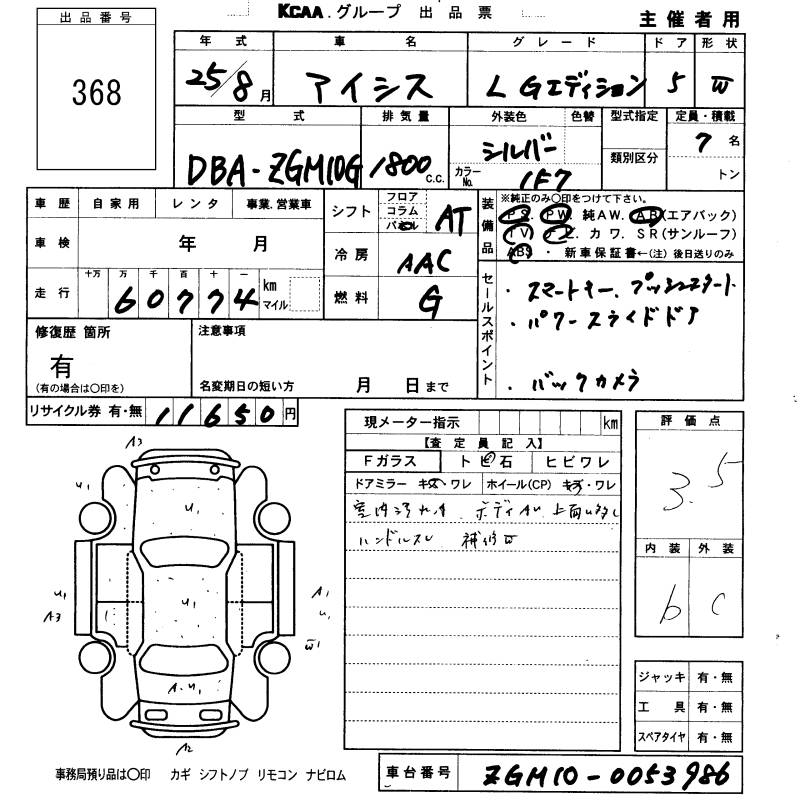 KCAA.グループ 出品票
主催者用
出品番号
368
年式 車名 グレード ドア 形状
25/8月 アイシス L Gエディション 5 W
型式 排気量 外装色 色替 型式指定 定員・積載
DBA-ZGM10G 1800c.c. シルバー カラーNo. 1F7 類別区分 7名 トン
車歴 自家用 レンタ 事業.営業車
シフト フロア コラム パネル AT
装備品 ※純正のみ〇印をつけて下さい。
PS. PW. 純AW. AB(エアバック)
TV. ナビ. カワ. SR(サンルーフ)
ABS ・ 新車保証書←(注) 後日送りのみ
車検 年 月
冷房 AAC
走行 十万 万 千 百 十 一
60774 km マイル
燃料 G
セールスポイント
・スマートキー、プッシュスタート
・パワースライドドア
・バックカメラ
修復歴 箇所
有
(有の場合は〇印を)
注意事項
名変期日の短い方 月 日まで
リサイクル券 有・無 11650円
現メーター指示 km
【査定員記入】
Fガラス トビ石 ヒビワレ
ドアミラー キズ・ワレ ホイール(CP) キズ・ワレ
ハンドルスレ 補修W
評価点
3.5
内装 外装
b C
A3
U1
U1
A3
U1
U1
A1
U1
W1
A.U1
A2
ジャッキ 有・無
工具 有・無
スペアタイヤ 有・無
事務局預り品は〇印 カギ シフトノブ リモコン ナビロム
車台番号 ZGM10-0053986